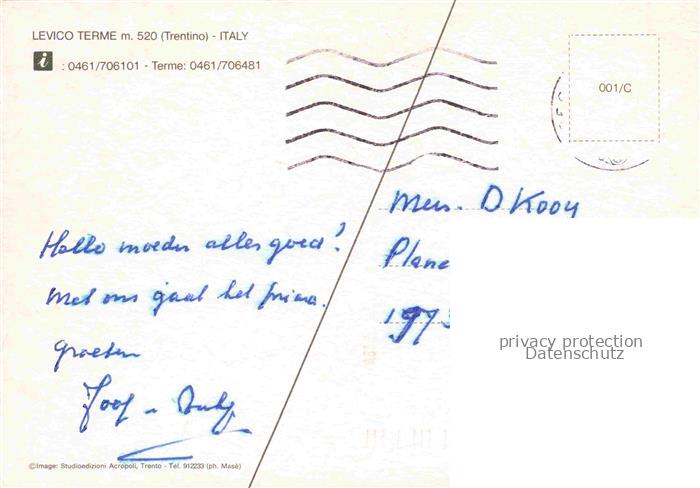 LEVICO TERME m. 520 (Trentino) - ITALY
i : 0461/706101 - Terme: 0461/706481
001/C
Hallo moeder alles goed?
Met ons gaat het prima.
groeten
Joop
Mevr. D Kooy
Plane
197
privacy protection
Datenschutz
©Image: Studioedizioni Acropoli, Trento - Tel. 912233 (ph. Masè)